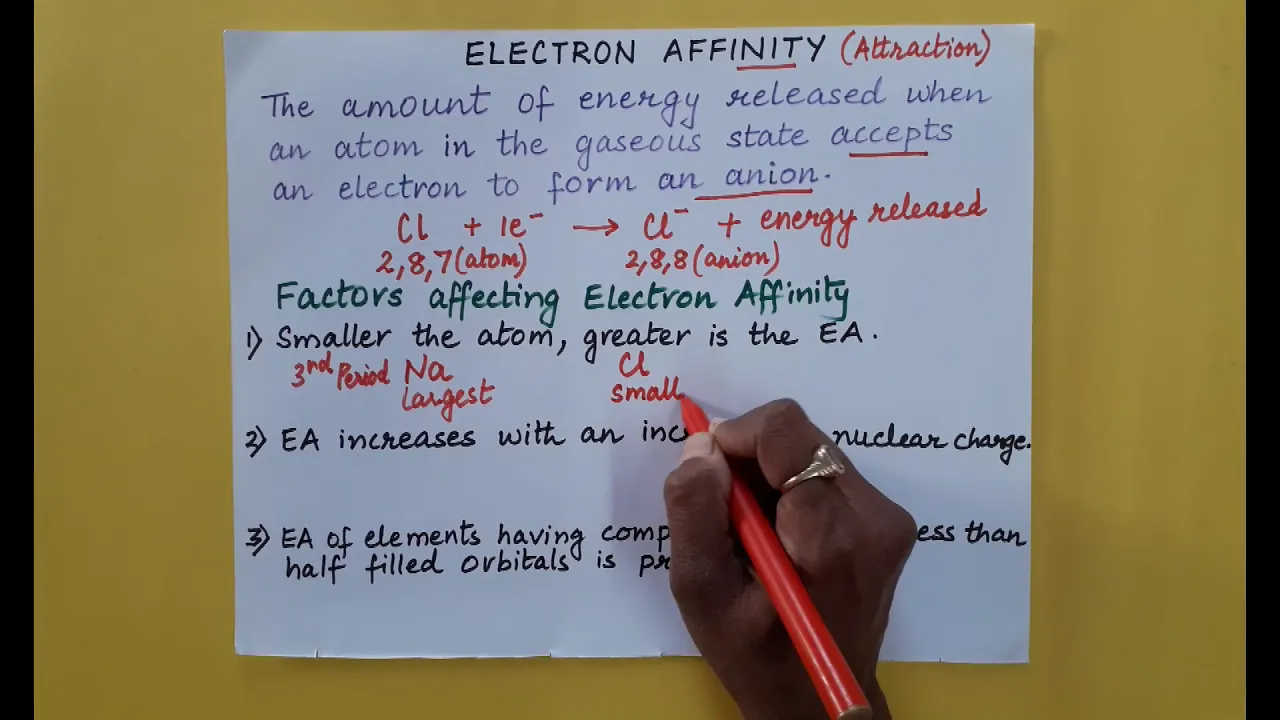 ELECTRON AFFINITY (Attraction)
The amount of energy released when
an atom in the gaseous state accepts
an electron to form an anion.
Cl + 1e⁻ → Cl⁻ + energy released
2,8,7 (atom) 2,8,8 (anion)
Factors affecting Electron Affinity
1) Smaller the atom, greater is the EA.
3rd Period Na Cl
Largest Small
2) EA increases with an nuclear charge.
3) EA of elements having than
half filled orbitals is